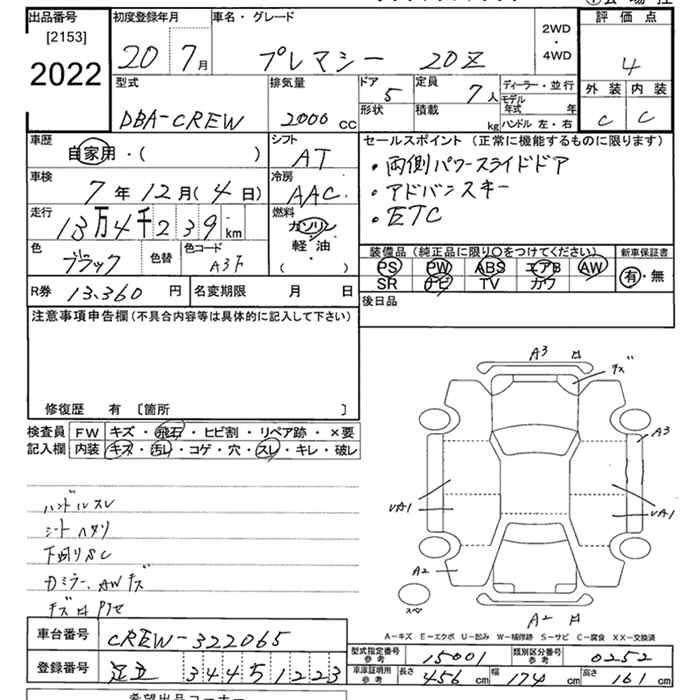 出品番号 初度登録年月 車名・グレード 2WD・4WD 評価点
[2153]
2022 20 7月 プレマシー 20Z 4
型式 排気量 ドア 5 定員 7人 ディーラー・並行 外装 内装
DBA-CREW 2000 CC 形状 積載 kg モデル年式 年 ハンドル 左・右 C C
車歴 自家用・( ) シフト AT セールスポイント(正常に機能するものに限ります)
車検 7年12月(4日) 冷房 AAC
・両側パワースライドドア
・アドバンスキー
・ETC
走行 13万4千239km 燃料 ガソリン 軽・油 ( )
色 ブラック 色替 色コード A3F
装備品(純正品に限り○をつけてください) 新車保証書
PS PW ABS エアB AW 有・無
SR ナビ TV カワ
R券 13,360円 名変期限 月 日 後日品
注意事項申告欄(不具合内容等は具体的に記入して下さい)
修復歴 有 〔箇所 〕
検査員 FW キズ・飛石・ヒビ割・リペア跡・×要
記入欄 内装 キズ・汚レ・コゲ・穴・スレ・キレ・破レ
ハンドルスレ
シートヘタリ
下回りSC
Dミラー、AWキズ
A3
キズ
A3
UA1
UA1
A2
スペ
A2
A-キズ E-エクボ U-凹み W-補修跡 S-サビ C-腐食 XX-交換済
車台番号 CREW-322065
型式指定番号 参考 15001 類別区分番号 参考 0252
登録番号 足立 344 51223
車庫証明用 参考 長さ 456cm 幅 174cm 高さ 161cm
希望出品コーナー